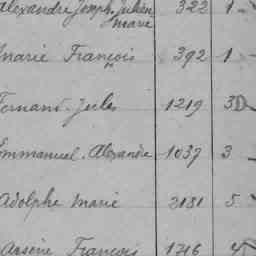 Alexandre Joseph Julien 322 1
Marie
Marie François 392 1
Fernand Jules 1219 3D
Emmanuel Alexandre 1037 3
Adolphe Marie 2181 5
Arsène François 1716 4